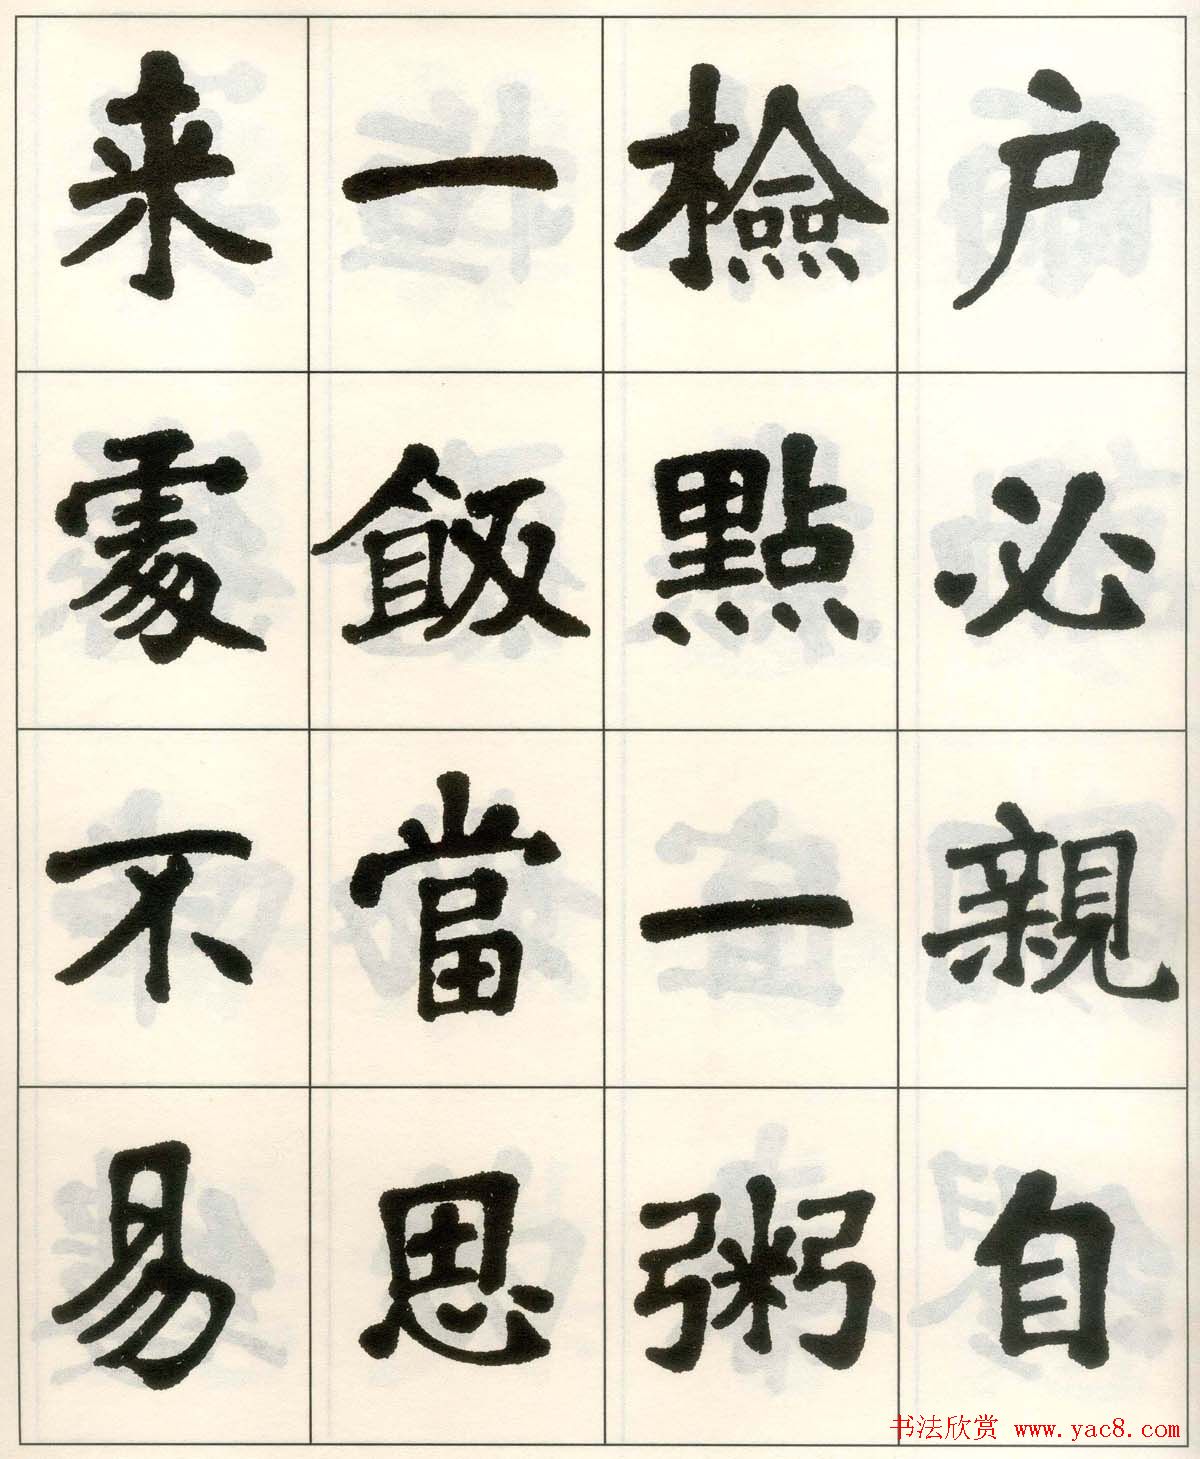 户必親自
檢點一粥
一飯當思
来處不易
书法欣赏 www.yac8.com